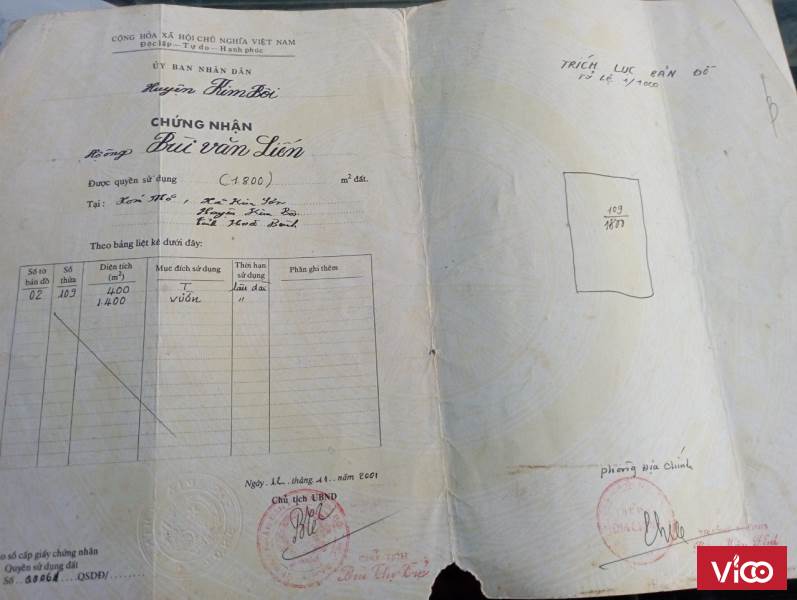 CỘNG HÒA XÃ HỘI CHỦ NGHĨA VIỆT NAM
Độc lập - Tự do - Hạnh phúc
ỦY BAN NHÂN DÂN
Huyện Kim Bôi
CHỨNG NHẬN
Hộ ông Bùi văn Liến
Được quyền sử dụng (1.800) m² đất.
Tại: Xóm , Xã Kim
Huyện Kim Bôi
tỉnh Hoà Bình
Theo bảng liệt kê dưới đây:
Số tờ bản đồ Số thửa Diện tích (m²) Mục đích sử dụng Thời hạn sử dụng Phần ghi thêm
02 109 400 T lâu dài
1.400 vườn "
Ngày 12 tháng 11 năm 2001
Chủ tịch UBND
CHỦ TỊCH
Bùi Thị
o sổ cấp giấy chứng nhận
Quyền sử dụng đất
Số QSDĐ/
TRÍCH LỤC BẢN ĐỒ
Tỷ lệ 1/1000
109
1800
phòng Địa chính
ViCO